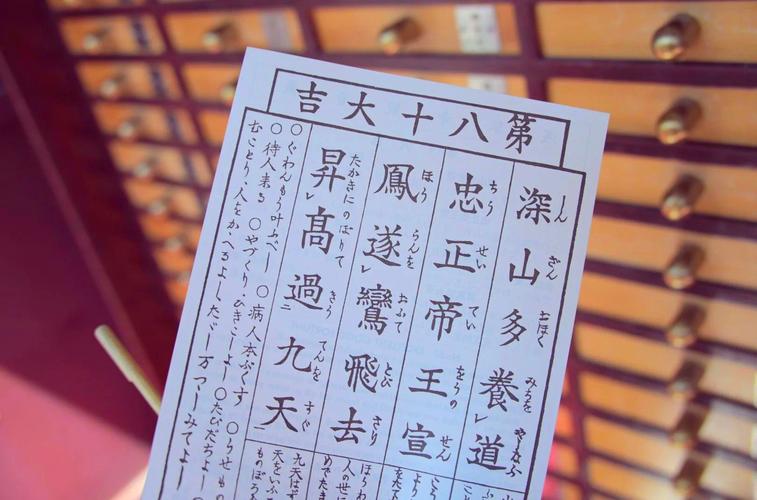 第八十大吉
深山多養道
しん ざん おほく みちを やしなふ
忠正帝王宣
ちう せい てい わうの せん
鳳遂鸞飛去
ほう らんを おふて とび さり
昇髙過九天
たかきにのぼりて きう てんを すぐ
○ぐわんもう叶ふべし ○病人本ぶくす ○うせもの
○待人来る ○やづくり、ひきこしよし ○たびだちよし
むことり、人をかゝへるよしたゞし万つゝしみてよし
人の世に
めでたき
九天は
天をいふ